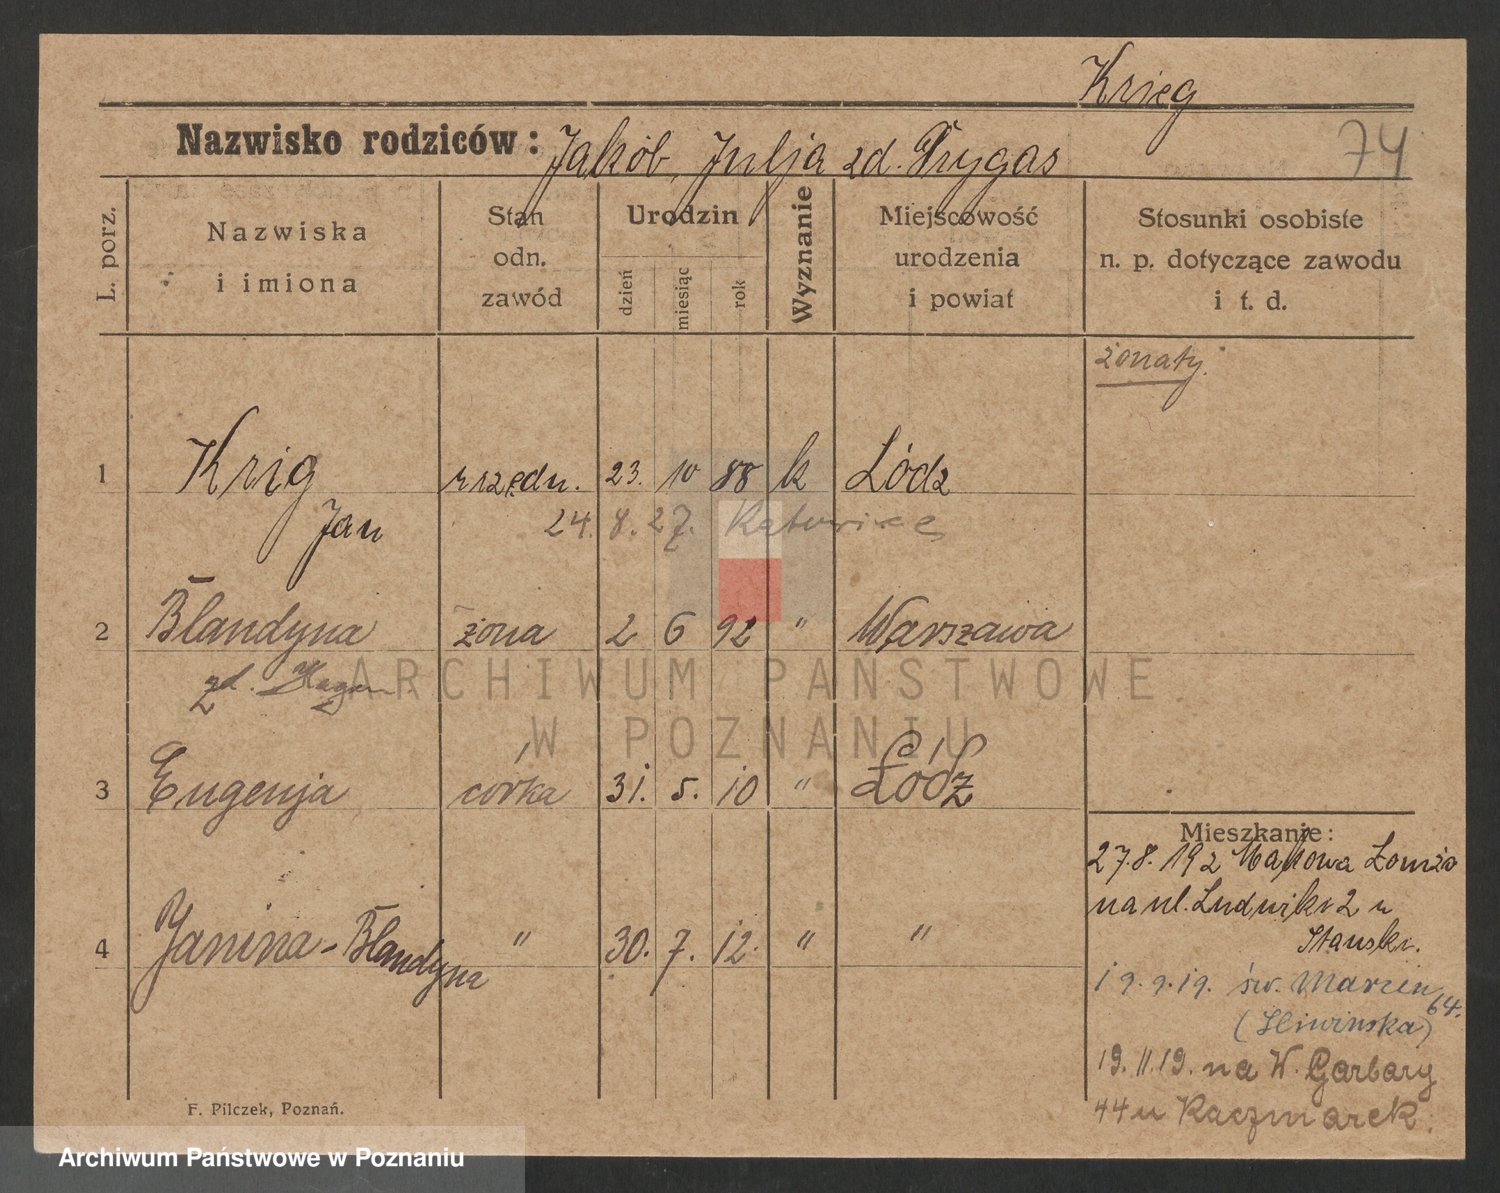 Krieg
Nazwisko rodziców: Jakób, Julja zd. Frygas
74
L. porz.
Nazwiska i imiona
Stan odn. zawód
Urodzin
dzień
miesiąc
rok
Wyznanie
Miejscowość urodzenia i powiat
Stosunki osobiste n. p. dotyczące zawodu i t. d.
żonaty.
1 Krig urzędn. 23. 10 88 k Łódz
Jan 24. 8. 27. Katowice
2 Blandyna żona 2 6 92 " Warszawa
zd. Hagen
3 Eugenja córka 31. 5. 10 " Łódź
4 Janina-Blandyna " 30. 7. 12. " "
Mieszkanie:
27.8.192 Łomża
na ul. Ludwiki 2 u
Stanski.
19.9.19. św. Marcin 64.
(Sliwinska)
19.11.19. na W. Garbary
44 u Kaczmarek.
F. Pilczek, Poznań.
ARCHIWUM PAŃSTWOWE
W POZNANIU
Archiwum Państwowe w Poznaniu